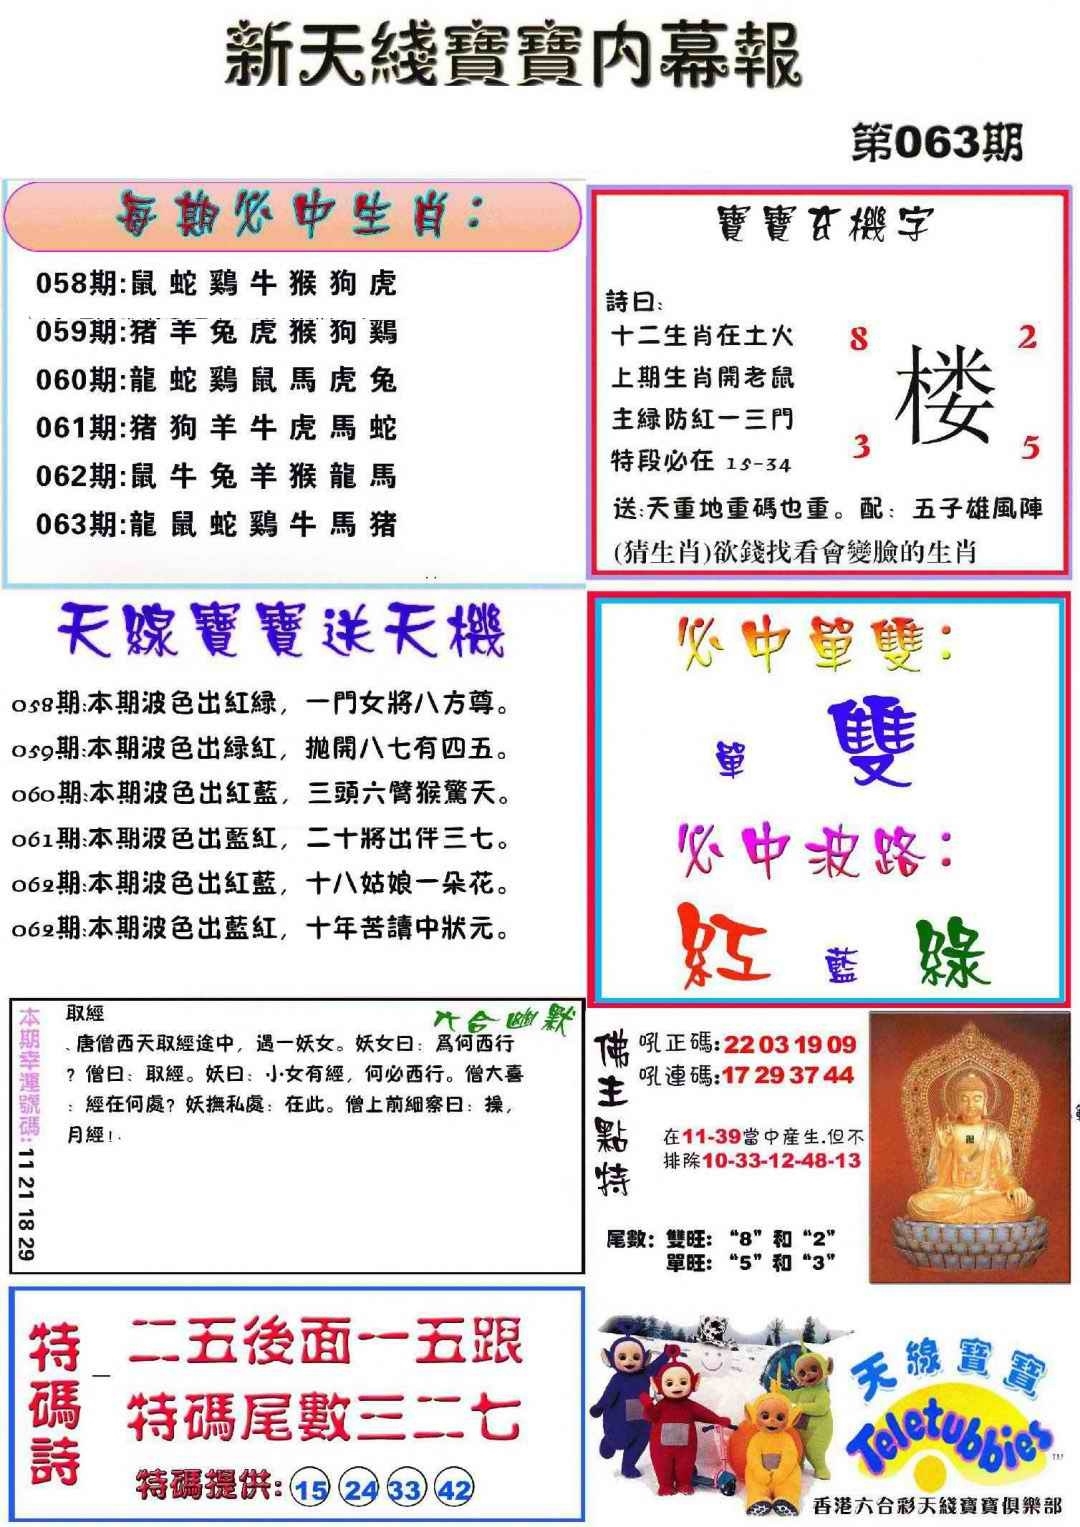 新天綫寶寶内幕報
第063期
每期必中生肖：
058期:鼠 蛇 鷄 牛 猴 狗 虎
059期:猪 羊 兔 虎 猴 狗 鷄
060期:龍 蛇 鷄 鼠 馬 虎 兔
061期:猪 狗 羊 牛 虎 馬 蛇
062期:鼠 牛 兔 羊 猴 龍 馬
063期:龍 鼠 蛇 鷄 牛 馬 猪
寶寶玄機字
詩曰:
十二生肖在土火
上期生肖開老鼠
主緑防紅一三門
特段必在 15-34
8 2
楼
3 5
送:天重地重碼也重。配： 五子雄風陣
(猜生肖)欲錢找看會變臉的生肖
天線寶寶送天機
058期:本期波色出紅緑，一門女將八方尊。
059期:本期波色出緑紅，抛開八七有四五。
060期:本期波色出紅藍，三頭六臂猴驚天。
061期:本期波色出藍紅，二十將出伴三七。
062期:本期波色出紅藍，十八姑娘一朵花。
062期:本期波色出藍紅，十年苦讀中狀元。
必中單雙：
單 雙
必中波路：
紅 藍 綠
本期幸運號碼:11 21 18 29
六合幽默
取經
、唐僧西天取經途中，遇一妖女。妖女曰：爲何西行
？僧曰：取經。妖曰：小女有經，何必西行。僧大喜
：經在何處？妖撫私處：在此。僧上前細察曰：操，
月經！.
佛主點特
吼正碼:22 03 19 09
吼連碼:17 29 37 44
在11-39當中産生.但不
排除10-33-12-48-13
尾數：雙旺： “8”和“2”
單旺： “5”和“3”
特碼詩
二五後面一五跟
特碼尾數三二七
特碼提供: 15 24 33 42
天線寶寶
Teletubbies
TM
香港六合彩天綫寶寶俱樂部